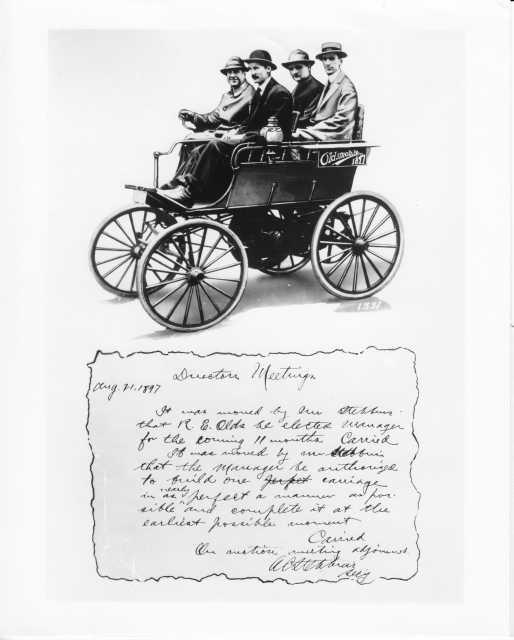 Oldsmobile
1897
1897
Directors Meeting
Aug. 21. 1897
It was moved by Mr Stebbins
that R. E. Olds be elected Manager
for the coming 11 months Carried
It was moved by Mr Stebbins
that the Manager be authorized
to build one perfect carriage
nearly
in as perfect a manner as pos-
sible and complete it at the
earliest possible moment
Carried
On motion, meeting adjourned.
Stebbins
Sec'y